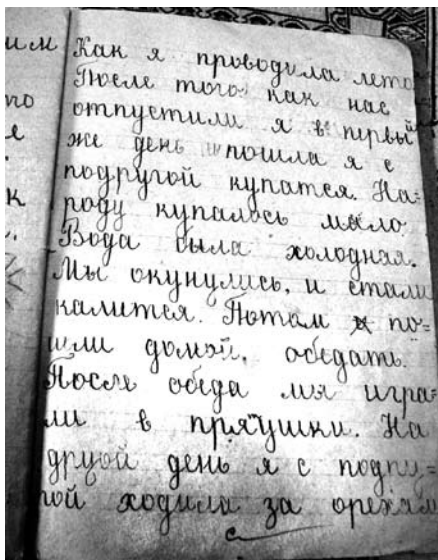 им
Как я проводила лето
После того как нас
то
отпустили я в первый
е
же день пошла я с
подругой купатся. На=
к
роду купалось мало.
Вода была холодная.
Мы окунулись, и стали
калится. Потом по-
шли домой, обедать.
После обеда мы игра=
ли в прятушки. На
другой день я с подру=
гой ходила за орехам